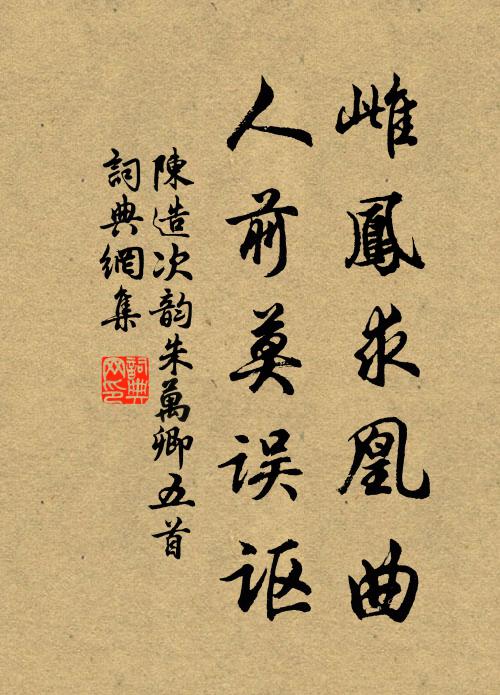 雌鳳求凰曲
人前莫误讴
陳造次韵朱萬卿五首
詞典網集
詞典网印